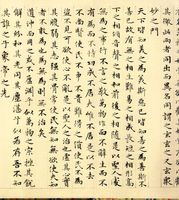 其徼此兩者同出而異名同謂之玄玄之又玄眾
妙
天下皆知美之為美斯惡已皆知善之為善斯不
善已故有無之相生難易之相成長短之相形高
下之相傾音聲之相和前後之相隨是以聖人處
無為之事行不言之教萬物作而不辭生而不
有為而不恃功成不居夫惟不居是以不去
不尚賢使民不爭不貴難得之貨使民不為
盜不見可欲使心不亂是以聖人之治也虛其心實
其腹弱其志強其骨常使民無知無欲使夫知
者不敢為也為無為則無不治矣
道沖而用之或不盈淵兮似萬物之宗挫其銳
解其紛和其光同其塵湛兮似或存吾不知
其誰之子象帝之先